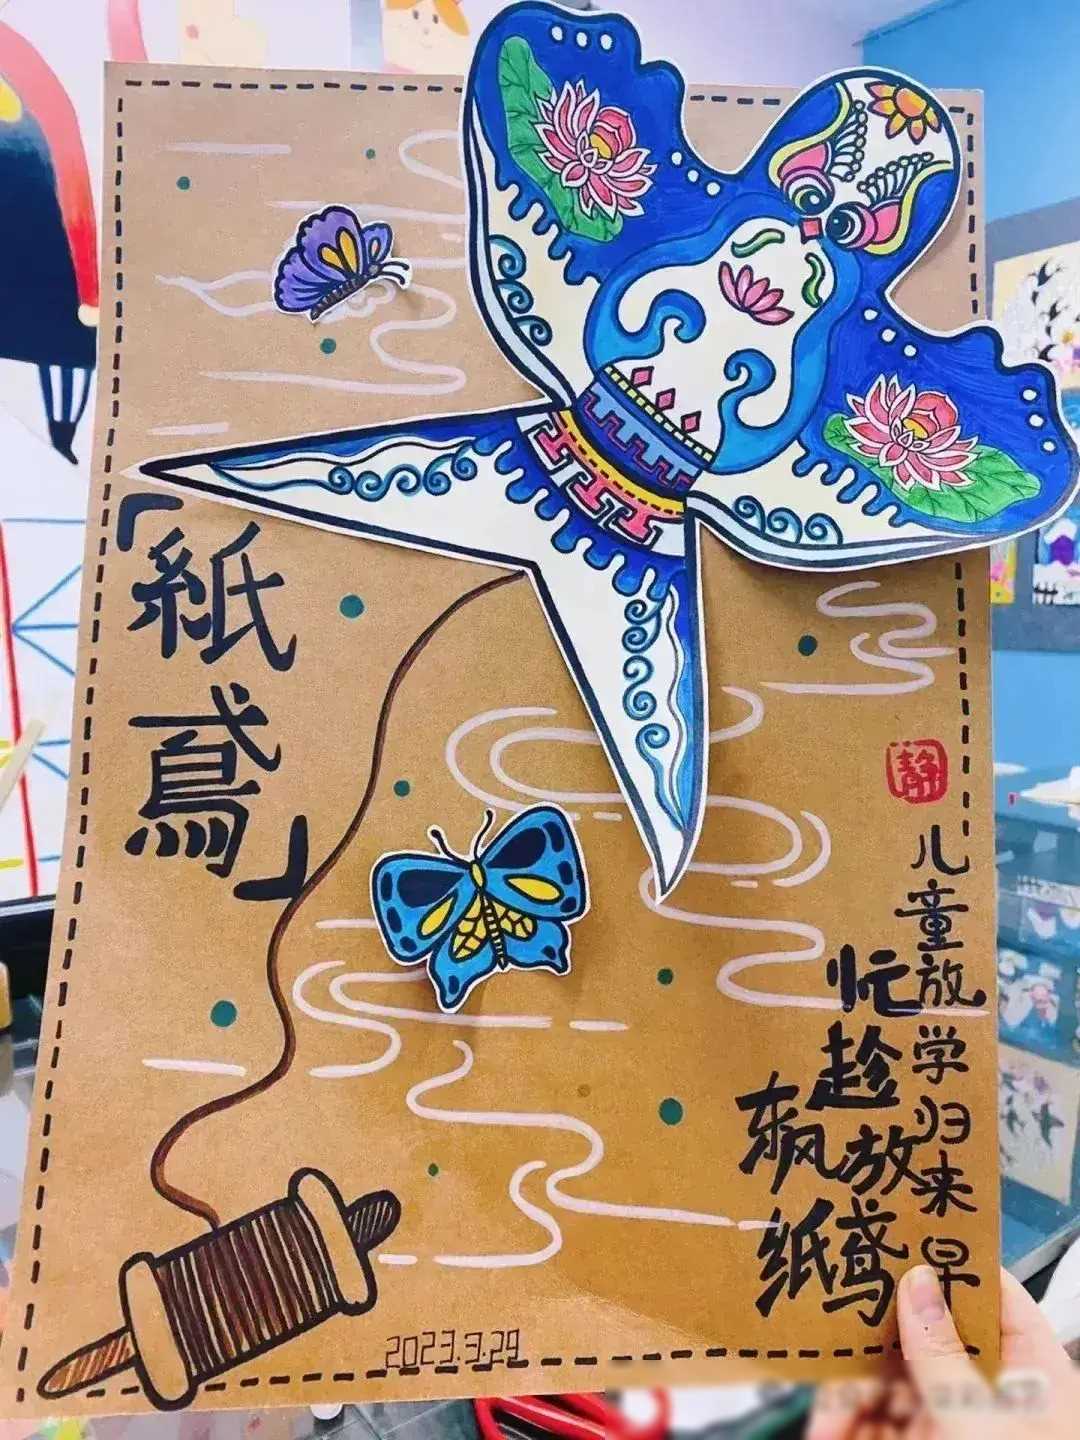 「紙鳶」
静
儿童放学归来早
忙趁东风放纸鸢
2023.3.29